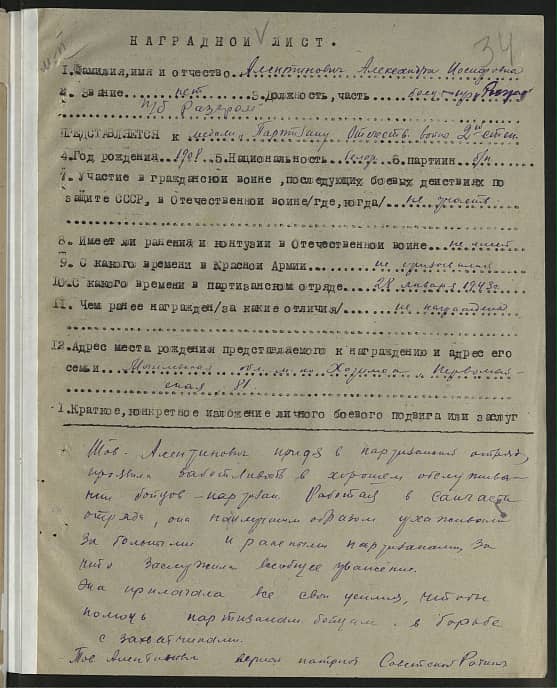 34
НАГРАДНОЙ ЛИСТ.
1.Фамилия,имя и отчество Алентинович Александра Иосифовна
2. Звание нет 3.Должность,часть
п/о Разгром
ПРЕДСТАВЛЯЕТСЯ к медали „Партизану Отечеств. войны 2й степ.
4.Год рождения 1908 5.Национальность 6.партийн б/п
7. Участие в гражданской войне ,последующих боевых действиях по
защите СССР, в Отечественной войне/где,когда/ не участв.
8. Имеет ли ранения и контузии в Отечественной войне не имеет
9. С какого времени в Красной Армии не призывалась
10.С какого времени в партизанском отряде 28 января 1943 г.
11. Чем ранее награжден/за какие отличия/ не награждена
12.Адрес места рождения представляемого к награждению и адрес его
семьи обл. Хотимск, Первомай-
ская 81.
1.Краткое,конкретное изложение личного боевого подвига или заслуг
Тов. Алентинович придя в партизанский отряд,
проявила заботливость в хорошем обслужива-
нии бойцов-партизан. Работая в санчасти
отряда, она наилучшим образом ухаживала
за больными и ранеными партизанами, за
что заслужила всеобщее уважение.
Она прилагала все свои усилия, чтобы
помочь партизанам бойцам в борьбе
с захватчиками.
Тов Алентинович верная патриот Советской Родины